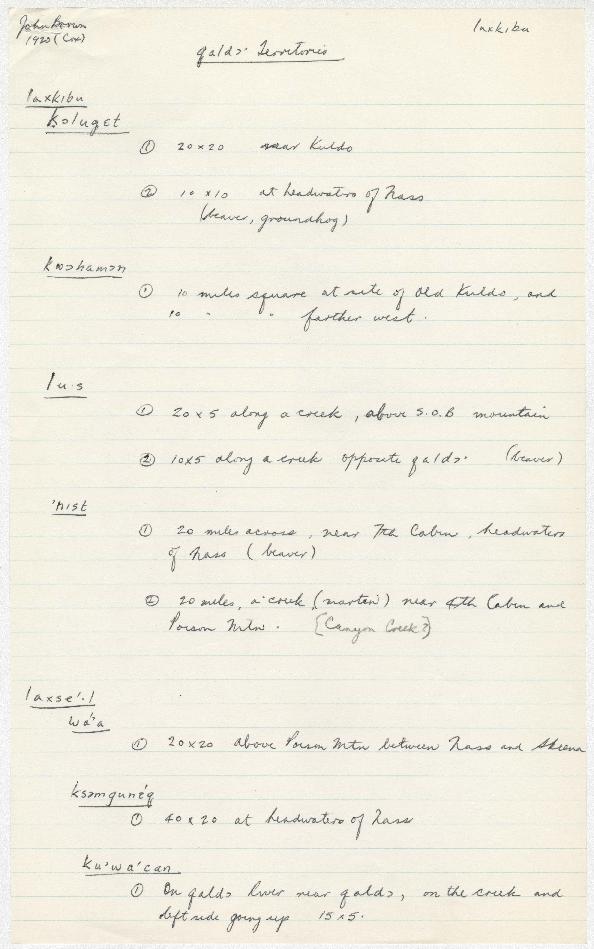 John Brown
1920 (Cox)
laxkibu
qaldɔ· Territories
laxkibu
kɔlugɛt
① 20 x 20 near Kuldo
② 10 x 10 at headwaters of Nass
(beaver, groundhog)
kwɔhamɔn
① 10 miles square at site of Old Kuldo, and
10 " " farther west.
lu·s
① 20 x 5 along a creek, above S.O.B mountain
② 10x5 along a creek opposite qaldɔ· (beaver)
'nist
① 20 miles across, near 7th Cabin, headwaters
of Nass (beaver)
② 20 miles, a creek (marten) near 4th Cabin and
Poison Mtn. [Canyon Creek?]
laxse'·l
wa'a
① 20x20 above Poison Mtn between Nass and Skeena
ksəmgunéq
① 40 x 20 at headwaters of Nass
ku'wa'can
① On qaldɔ River near qaldɔ, on the creek and
left side going up 15 x 5.